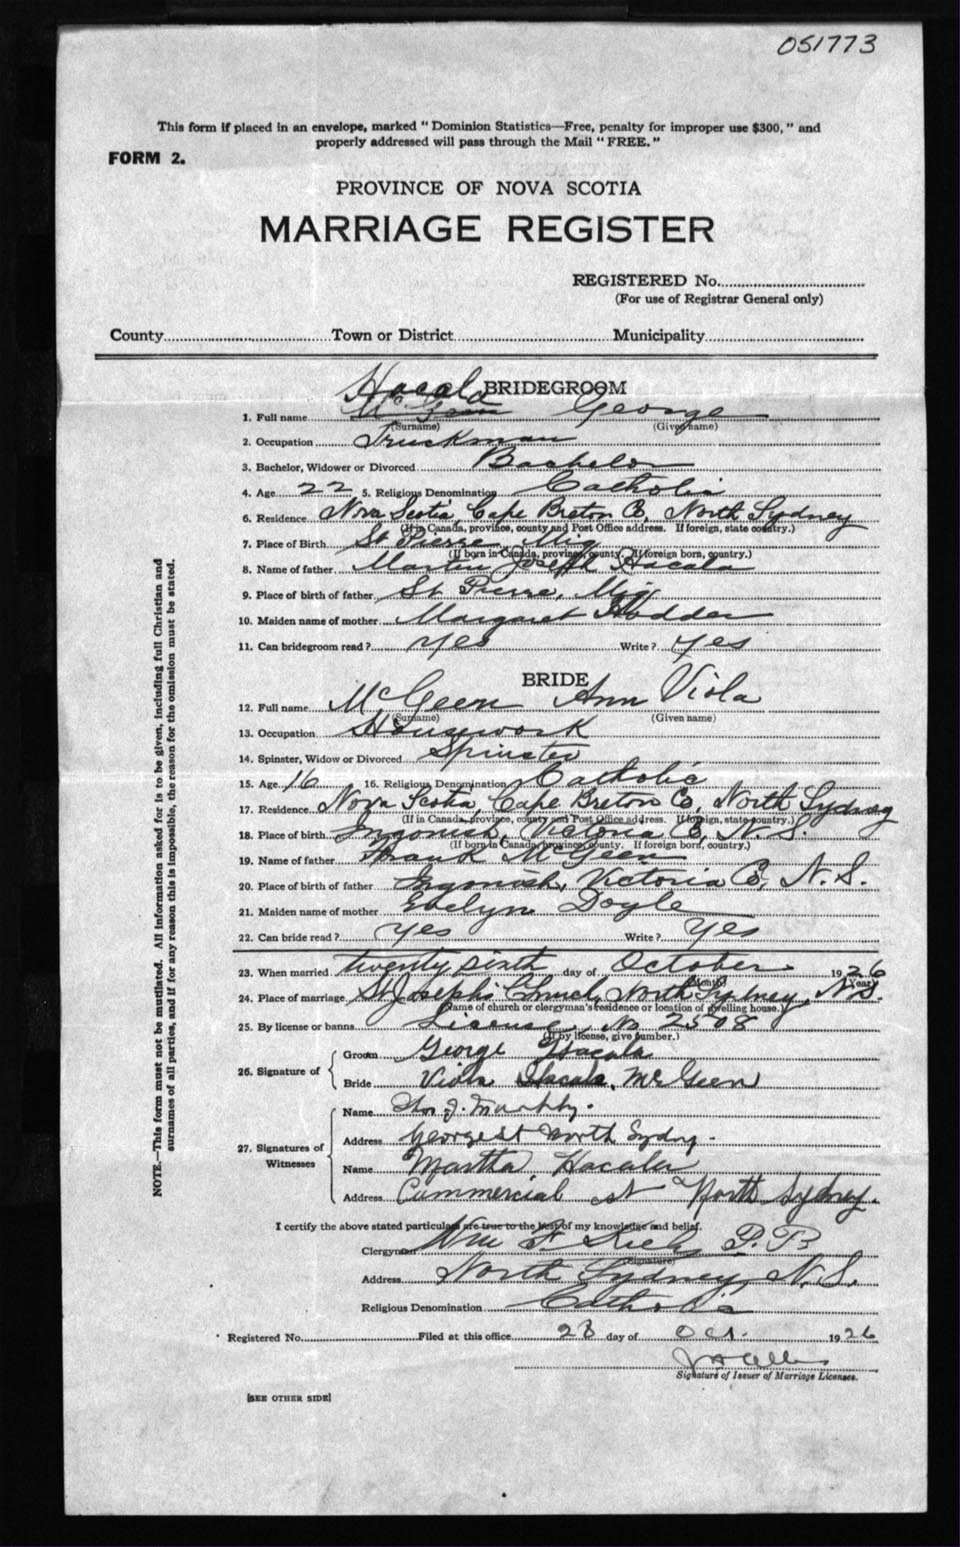 051773
This form if placed in an envelope, marked "Dominion Statistics—Free, penalty for improper use $300," and
properly addressed will pass through the Mail "FREE."
FORM 2.
PROVINCE OF NOVA SCOTIA
MARRIAGE REGISTER
REGISTERED No.
(For use of Registrar General only)
County Town or District Municipality
Hacala BRIDEGROOM
1. Full name George
(Surname) (Given name)
2. Occupation Truckman
3. Bachelor, Widower or Divorced Bachelor
4. Age 22 5. Religious Denomination Catholic
6. Residence Nova Scotia, Cape Breton Co, North Sydney
(If in Canada, province, county and Post Office address. If foreign, state country.)
7. Place of Birth St Pierre, Miq
(If born in Canada, province, county. If foreign born, country.)
8. Name of father Martin Joseph Hacala
9. Place of birth of father St Pierre, Miq
10. Maiden name of mother Margaret Hodder
11. Can bridegroom read? Yes Write? Yes
BRIDE
12. Full name McGeen Ann Viola
(Surname) (Given name)
13. Occupation Housework
14. Spinster, Widow or Divorced Spinster
15. Age 16 16. Religious Denomination Catholic
17. Residence Nova Scotia, Cape Breton Co, North Sydney
(If in Canada, province, county and Post Office address. If foreign, state country.)
18. Place of birth Ingonish, Victoria Co, N.S.
(If born in Canada, province, county. If foreign born, country.)
19. Name of father Frank McGeen
20. Place of birth of father Ingonish, Victoria Co, N.S.
21. Maiden name of mother Evelyn Doyle
22. Can bride read? Yes Write? Yes
23. When married twenty sixth day of October 1926
(Month) (Year)
24. Place of marriage St Joseph's Church, North Sydney, N.S.
(Name of church or clergyman's residence or location of dwelling house.)
25. By license or banns License, No 2508
(If by license, give number.)
26. Signature of
Groom George Hacala
Bride Viola Hacala, McGeen
27. Signatures of Witnesses
Name J. Murphy.
Address George St North Sydney.
Name Martha Hacala
Address Commercial St North Sydney.
I certify the above stated particulars are true to the best of my knowledge and belief.
Clergyman Wm F. P.P.
(Signature)
Address North Sydney, N.S.
Religious Denomination Catholic
Registered No. Filed at this office 28 day of Oct. 1926
Signature of Issuer of Marriage Licenses.
[SEE OTHER SIDE]
NOTE.—This form must not be mutilated. All information asked for is to be given, including full Christian and
surnames of all parties, and if for any reason this is impossible, the reason for the omission must be stated.